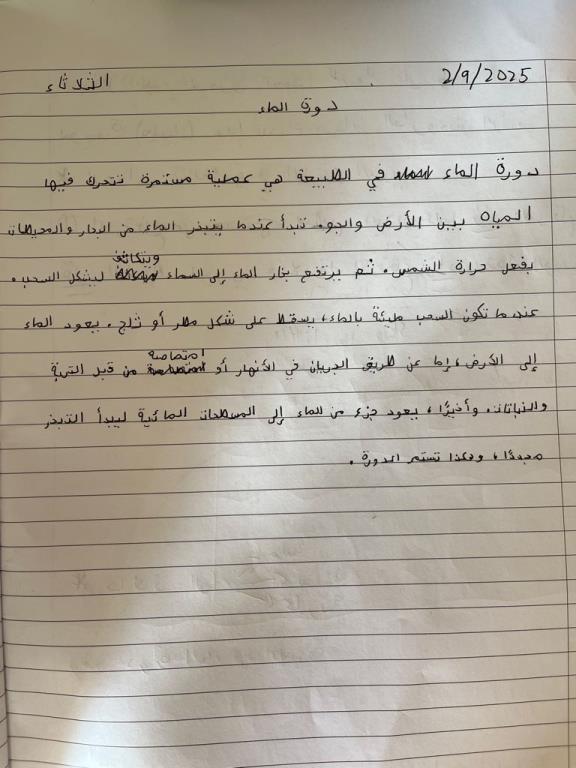 2/9/2025 الثلاثاء
دورة الماء
دورة الماء في الطبيعة هي عملية مستمرة تتحرك فيها
المياه بين الأرض والجو. تبدأ عندما يتبخر الماء من البحار والمحيطات
بفعل حرارة الشمس. ثم يرتفع بخار الماء إلى السماء ويتكاثف ليشكل السحب.
عندما تكون السحب مليئة بالماء، يسقط على شكل مطر أو ثلج. يعود الماء
إلى الأرض، إما عن طريق الجريان في الأنهار أو امتصاصه من قبل التربة
والنباتات. وأخيرًا، يعود جزء من الماء إلى المسطحات المائية ليبدأ التبخر
مجددًا، وهكذا تستمر الدورة.